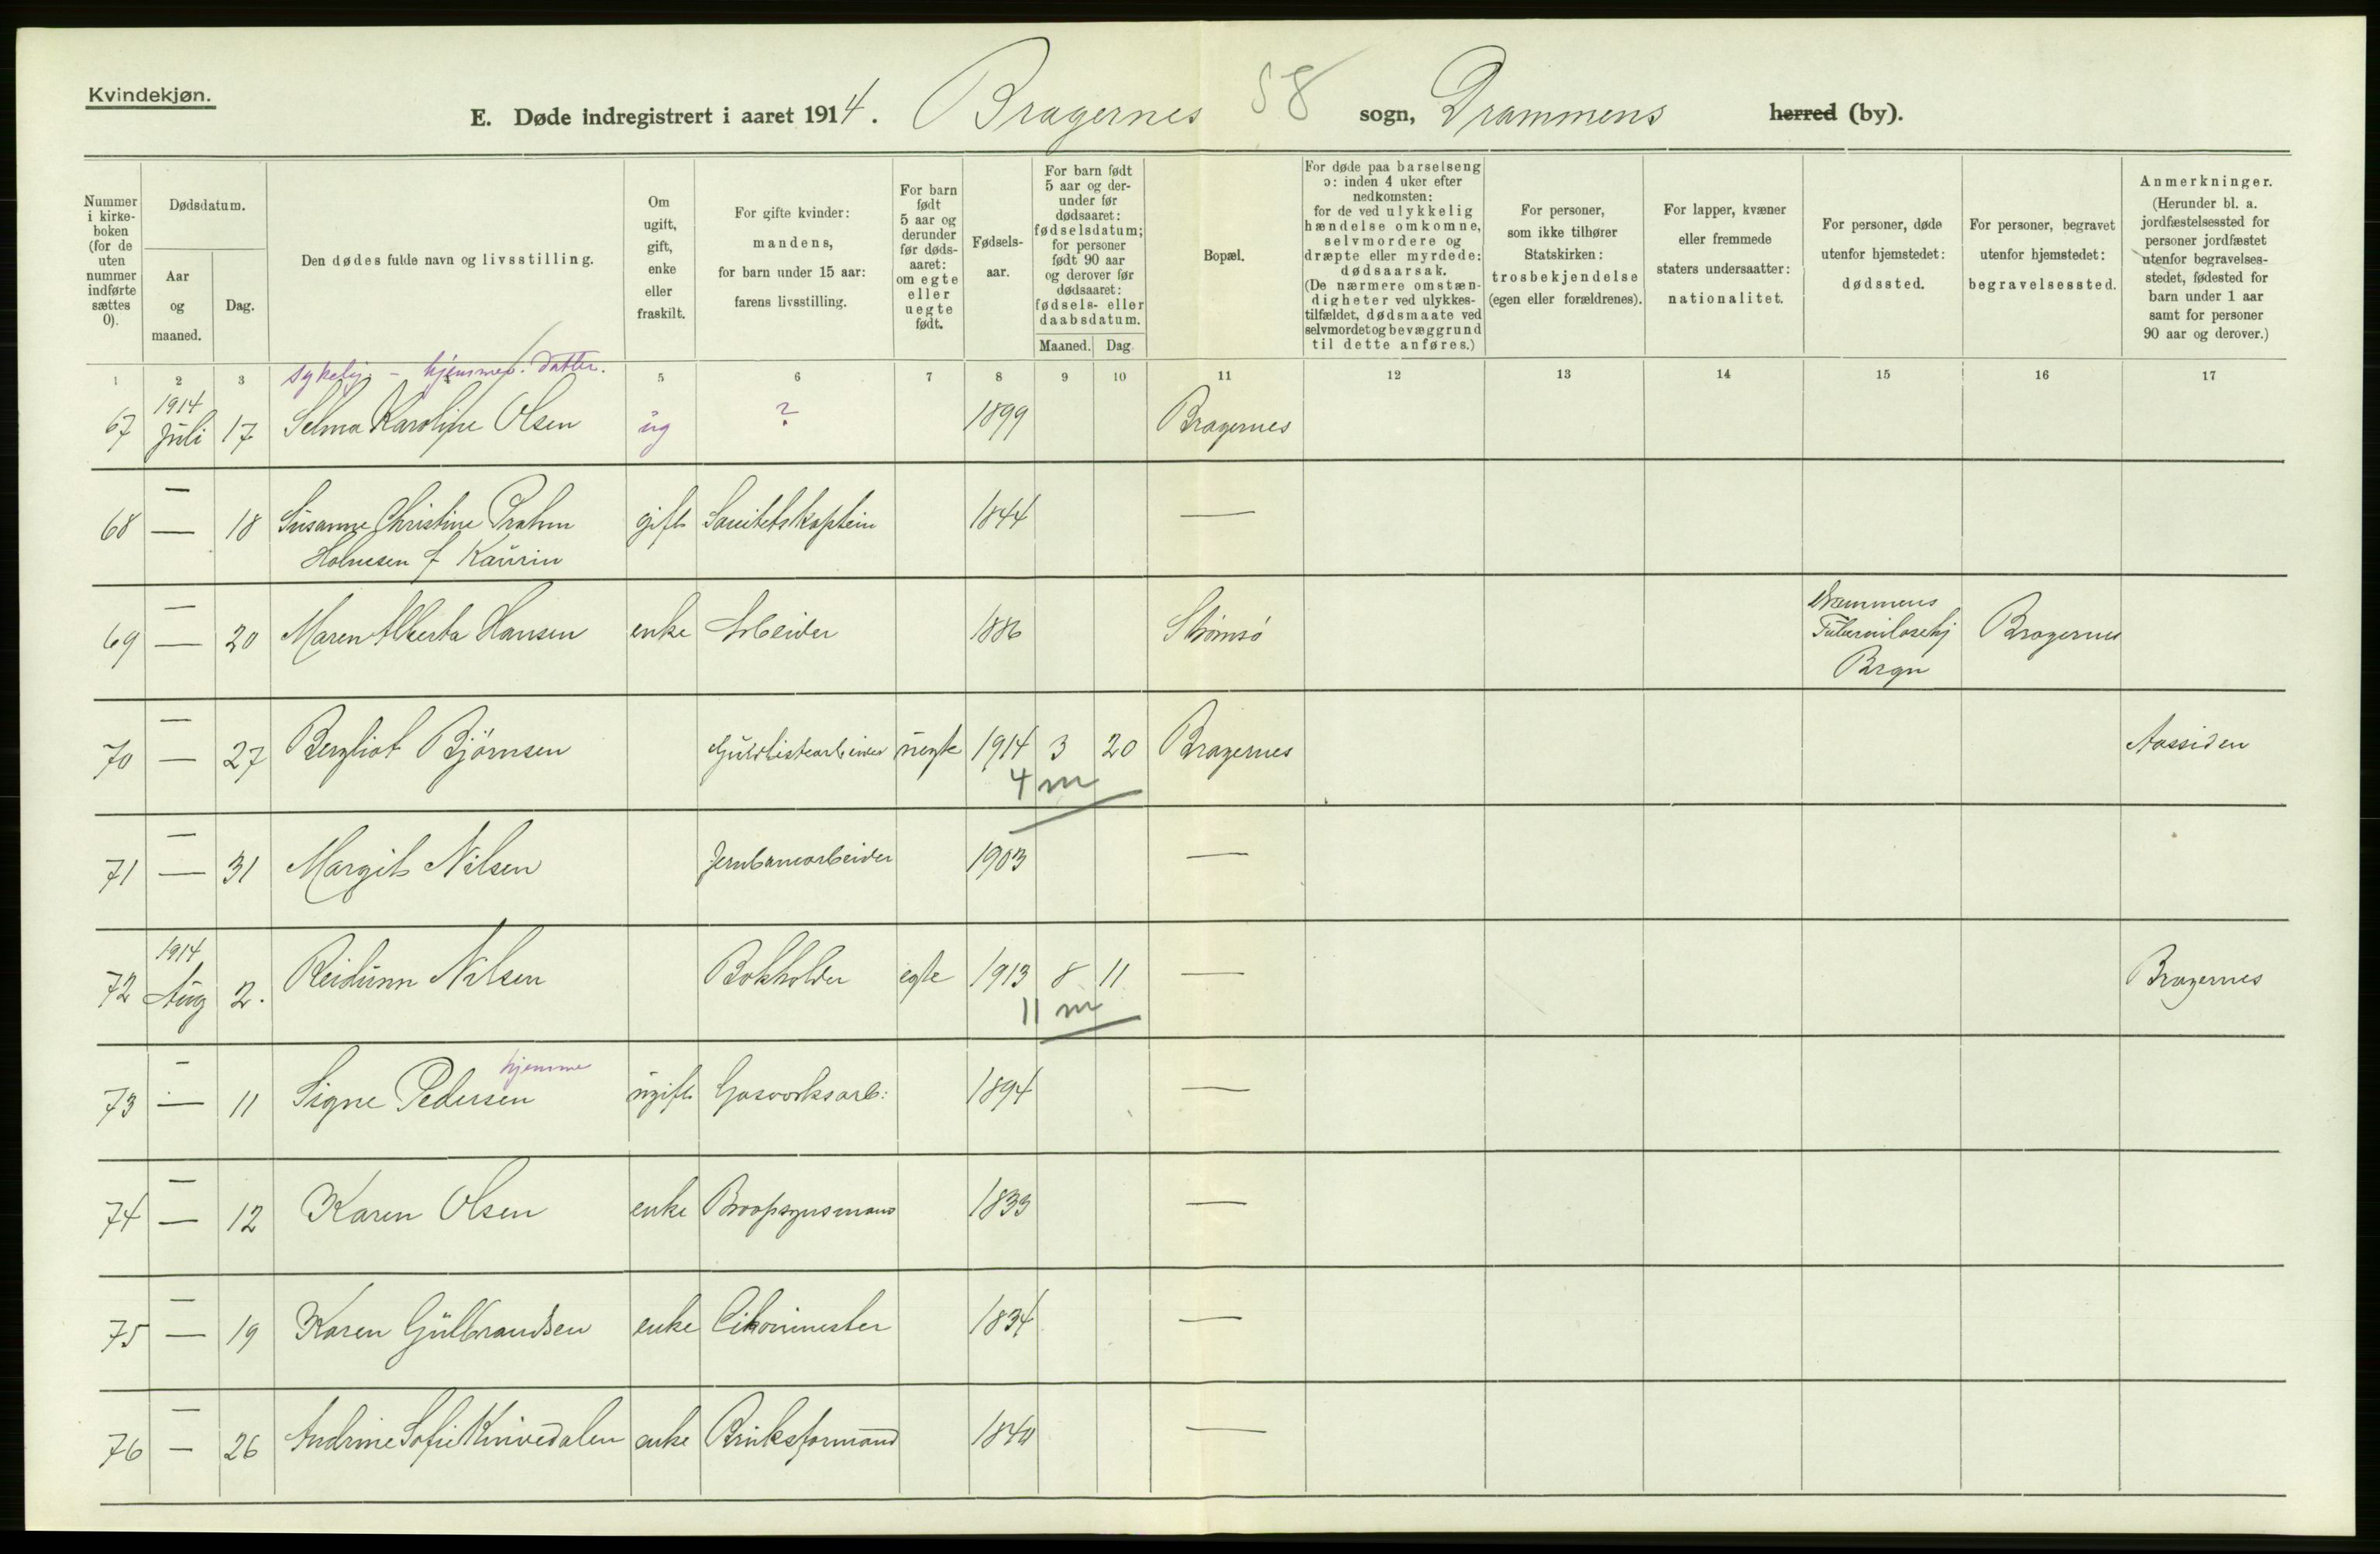 Kvindekjøn.
E. Døde indregistrert i aaret 1914. Bragernes 58 sogn, Drammens herred (by).
Nummer i kirke-boken (for de uten nummer indførte sættes 0).
Dødsdatum.
Aar og maaned.
Dag.
Den dødes fulde navn og livsstilling.
Om ugift, gift, enke eller fraskilt.
For gifte kvinder: mandens, for barn under 15 aar: farens livsstilling.
For barn født 5 aar og derunder før døds-aaret: om egte eller uegte født.
Fødsels-aar.
For barn født 5 aar og der-under før dødsaaret: fødselsdatum; for personer født 90 aar og derover før dødsaaret: fødsels- eller daabsdatum.
Maaned. Dag.
Bopæl.
For døde paa barselseng ɔ: inden 4 uker efter nedkomsten: for de ved ulykkelig hændelse omkomne, selvmordere og dræpte eller myrdede: dødsaarsak. (De nærmere omstæn-digheter ved ulykkes-tilfældet, dødsmaate ved selvmordet og bevæggrund til dette anføres.)
For personer, som ikke tilhører Statskirken: trosbekjendelse (egen eller forældrenes).
For lapper, kvæner eller fremmede staters undersaatter: nationalitet.
For personer, døde utenfor hjemstedet: dødssted.
For personer, begravet utenfor hjemstedet: begravelsessted.
Anmerkninger. (Herunder bl. a. jordfæstelsessted for personer jordfæstet utenfor begravelses-stedet, fødested for barn under 1 aar samt for personer 90 aar og derover.)
1 2 3 5 6 7 8 9 10 11 12 13 14 15 16 17
sykelig - hjemmev. datter.
67 1914 Juli 17 Selma Karoline Olsen ug ? 1899 Bragernes
68 — — 18 Susanne Christine Prahm gift Sanitetskaptein 1844 —
Holmsen f Kaurin
69 — — 20 Maren Alberta Hansen enke Arbeider 1886 Strømsø Drammens Tuberkulosehj Brgn Bragernes
70 — — 27 Bergliot Bjørnsen Guldlistearbeider uegte 1914 3 20 Bragernes Aassiden
4 m
71 — — 31 Margit Nilsen Jernbanearbeider 1903 —
72 1914 Aug 2. Reidunn Nilsen Bokholder egte 1913 8 11 — Bragernes
11 m
hjemme
73 — — 11 Signe Pedersen ugift Gasverksarb: 1894 —
74 — — 12 Karen Olsen enke Broopsynsmand 1833 —
75 — — 19 Karen Gulbrandsen enke 1834 —
76 — — 26 Andrine Sofie enke Bruksformand 1840 —